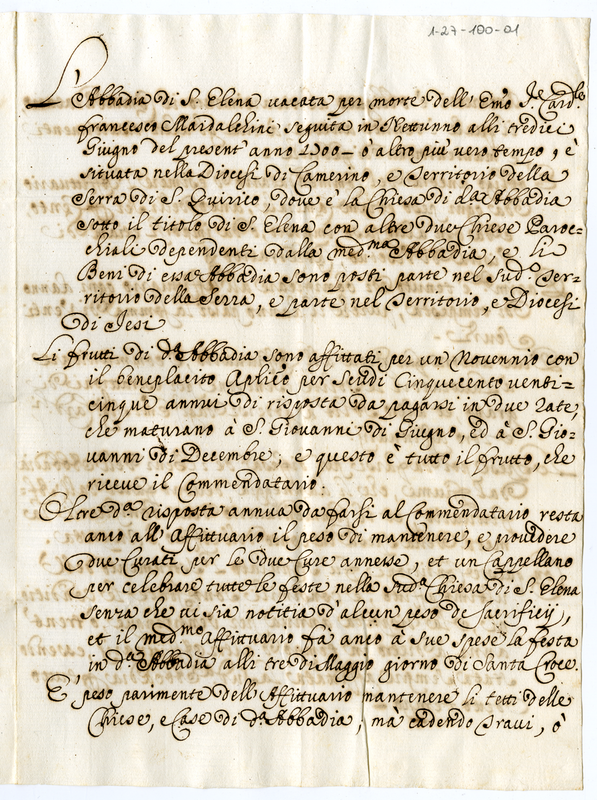 1-27-100-01
L'Abbadia di S. Elena vacata per morte dell' Emo Sre Cardle
francesco Maidalchini seguita in Nettunno alli tredici
Giugno del present' anno 1700 - ò altro più vero tempo, è
situata nella Diocesi di Camerino, e Territorio della
Serra di S. Quirico, dove è la Chiesa di da Abbadia
sotto il titolo di S. Elena con altre due Chiese Paroc=
chiali dependenti dalla medma Abbadia, e li
Beni di essa Abbadia sono posti parte nel sudo Ter=
ritorio della Serra, e parte nel Territorio, e Diocesi
di Jesi
Li frutti di da Abbadia sono affittati per un Novennio con
il beneplacito Aplico per scudi Cinquecento venti=
cinque annui di risposta da pagarsi in due rate,
che maturano à S. Giovanni di Giugno, ed à S. Gio=
vanni di Decembre; e questo è tutto il frutto, che
riceve il Commendatario.
Oltre da risposta annua da farsi al Commendatario resta
anco all' Affittuario il peso di mantenere, e provedere
due Curati per le due Cure annesse, et un Cappellano
per celebrare tutte le feste nella suda Chiesa di S. Elena
senza che vi sia notitia d'alcun peso de Sacrificij,
et il medmo Affittuario fà anco à sue spese la festa
in da Abbadia alli tre di Maggio giorno di Santa Croce.
E' peso parimente dell' Affittuario mantenere li tetti delle
Chiese, e Case di da Abbadia, mà cadendo Travi, ò